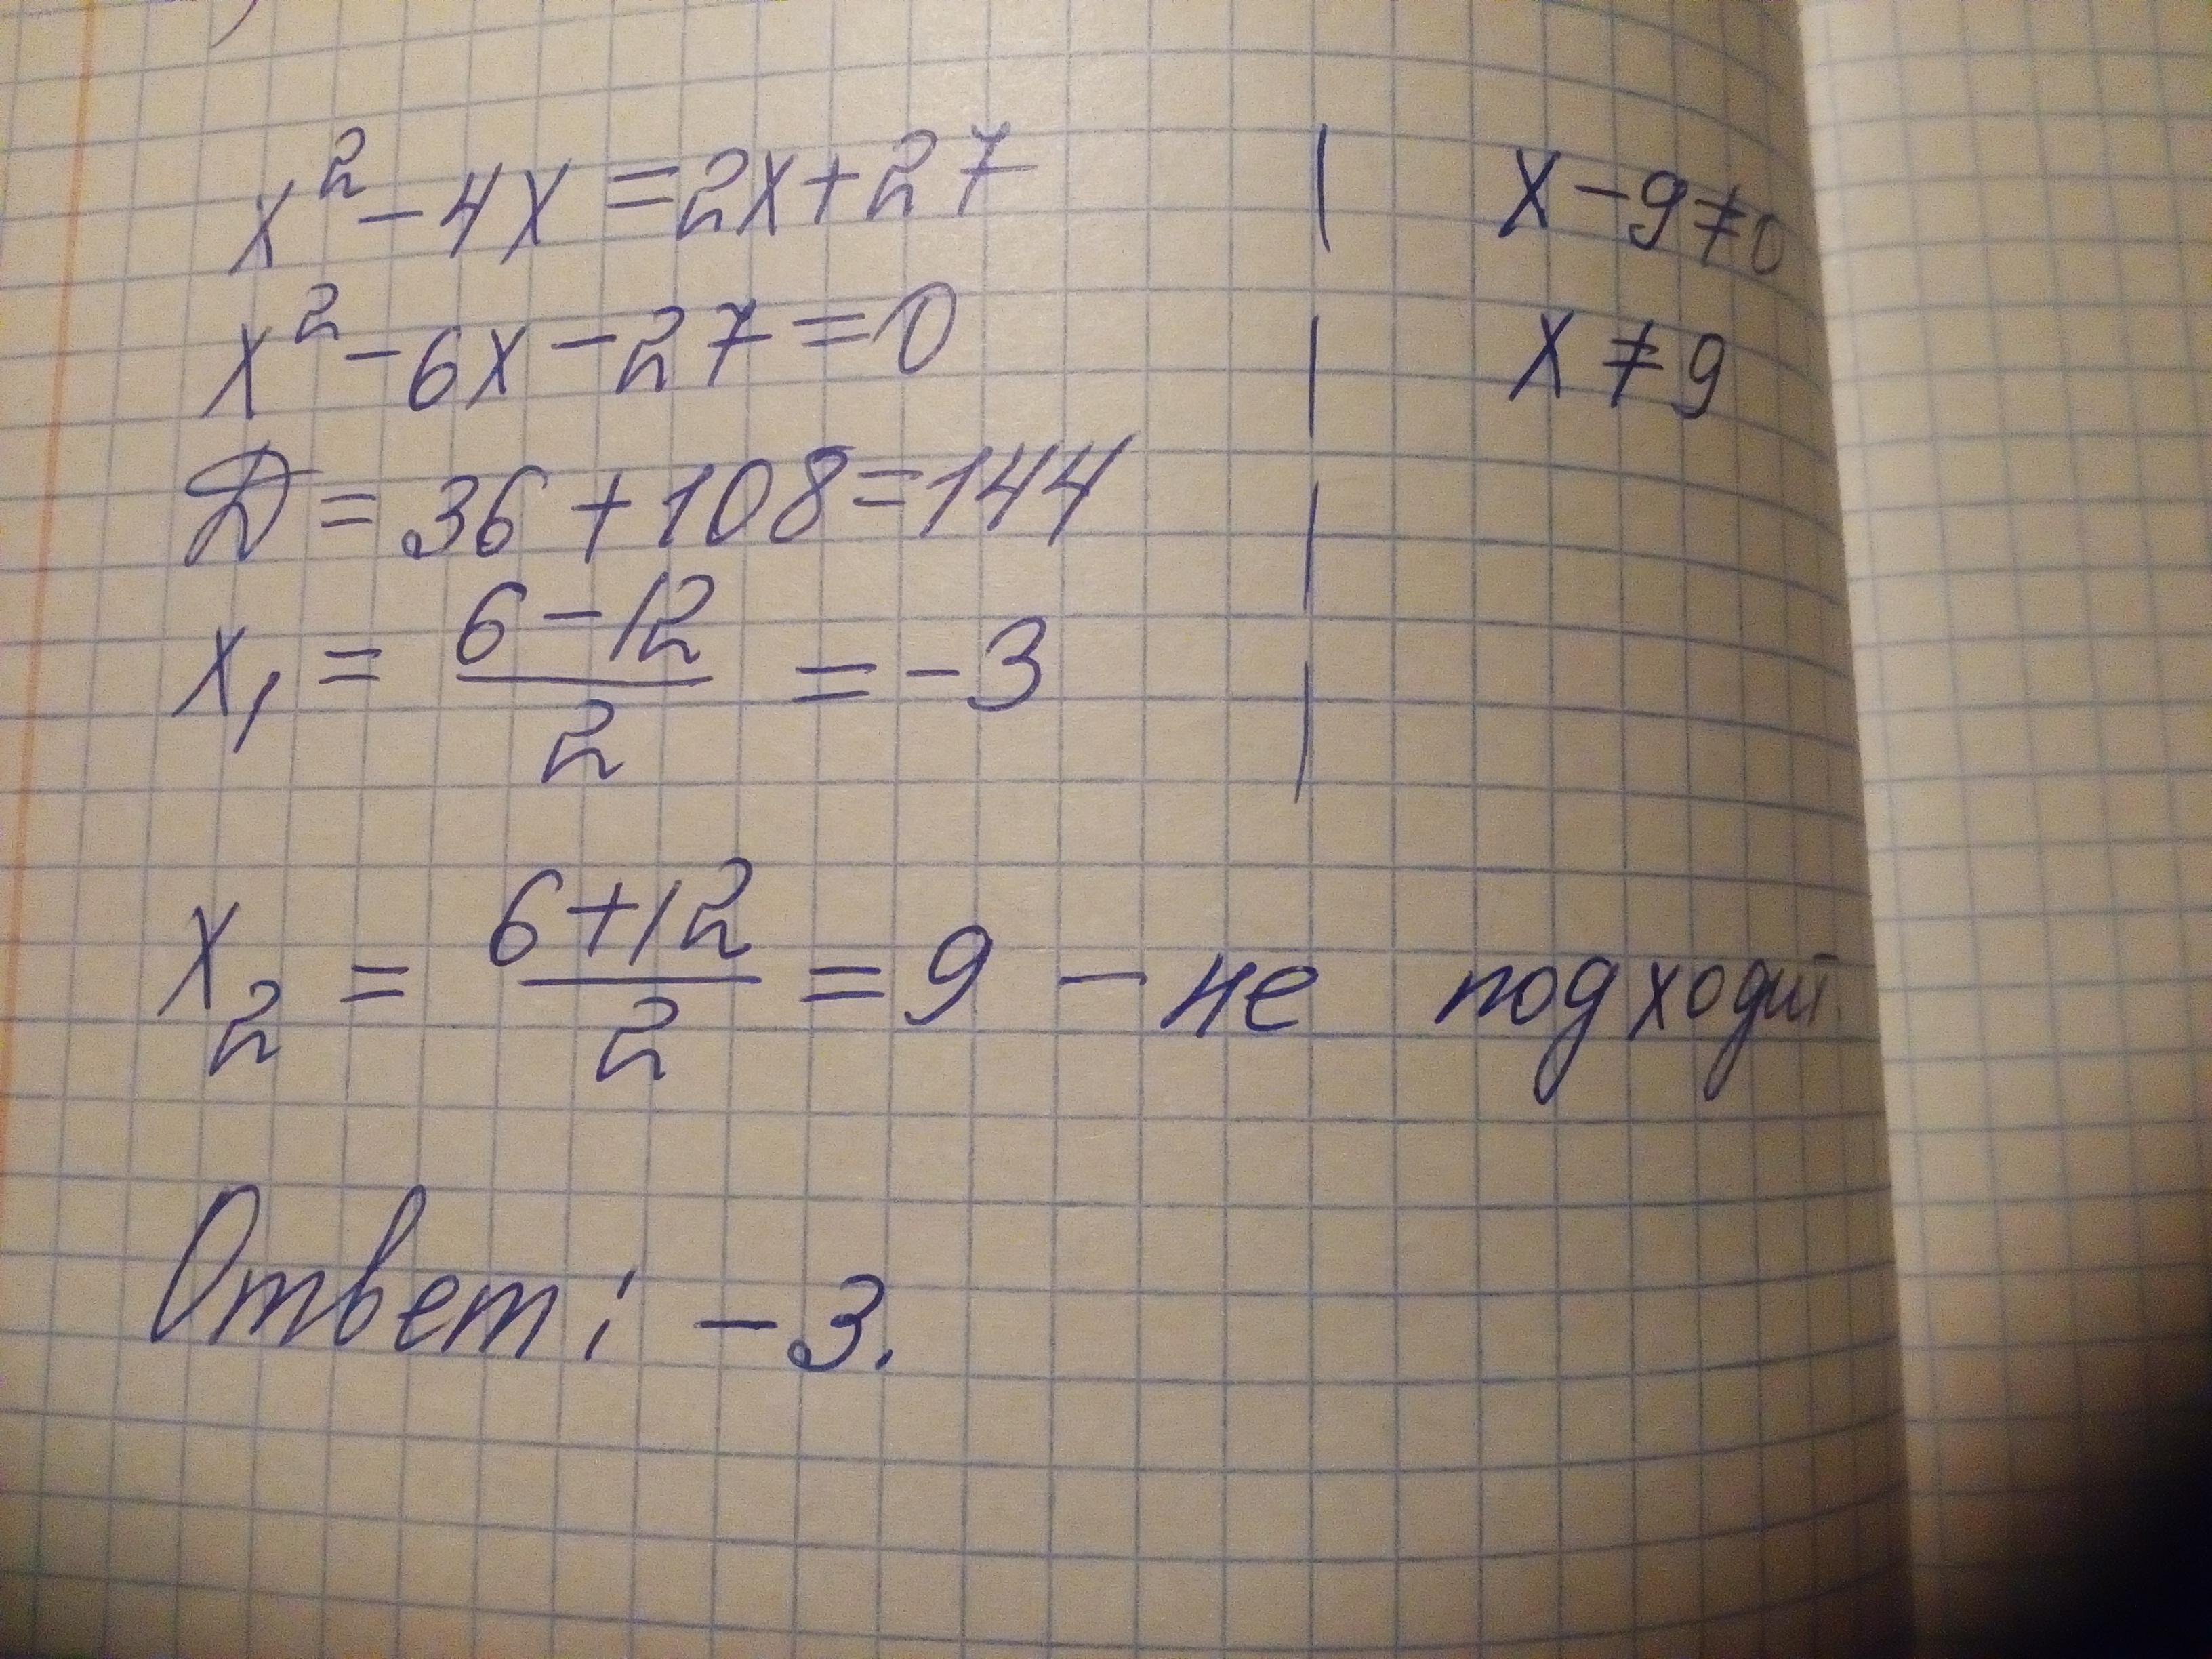 x² - 4x = 2x + 27 | x - 9 ≠ 0
x² - 6x - 27 = 0 | x ≠ 9
D = 36 + 108 = 144 |
x₁ = (6 - 12)/2 = -3 |
x₂ = (6 + 12)/2 = 9 - не подходит.
Ответ: -3.